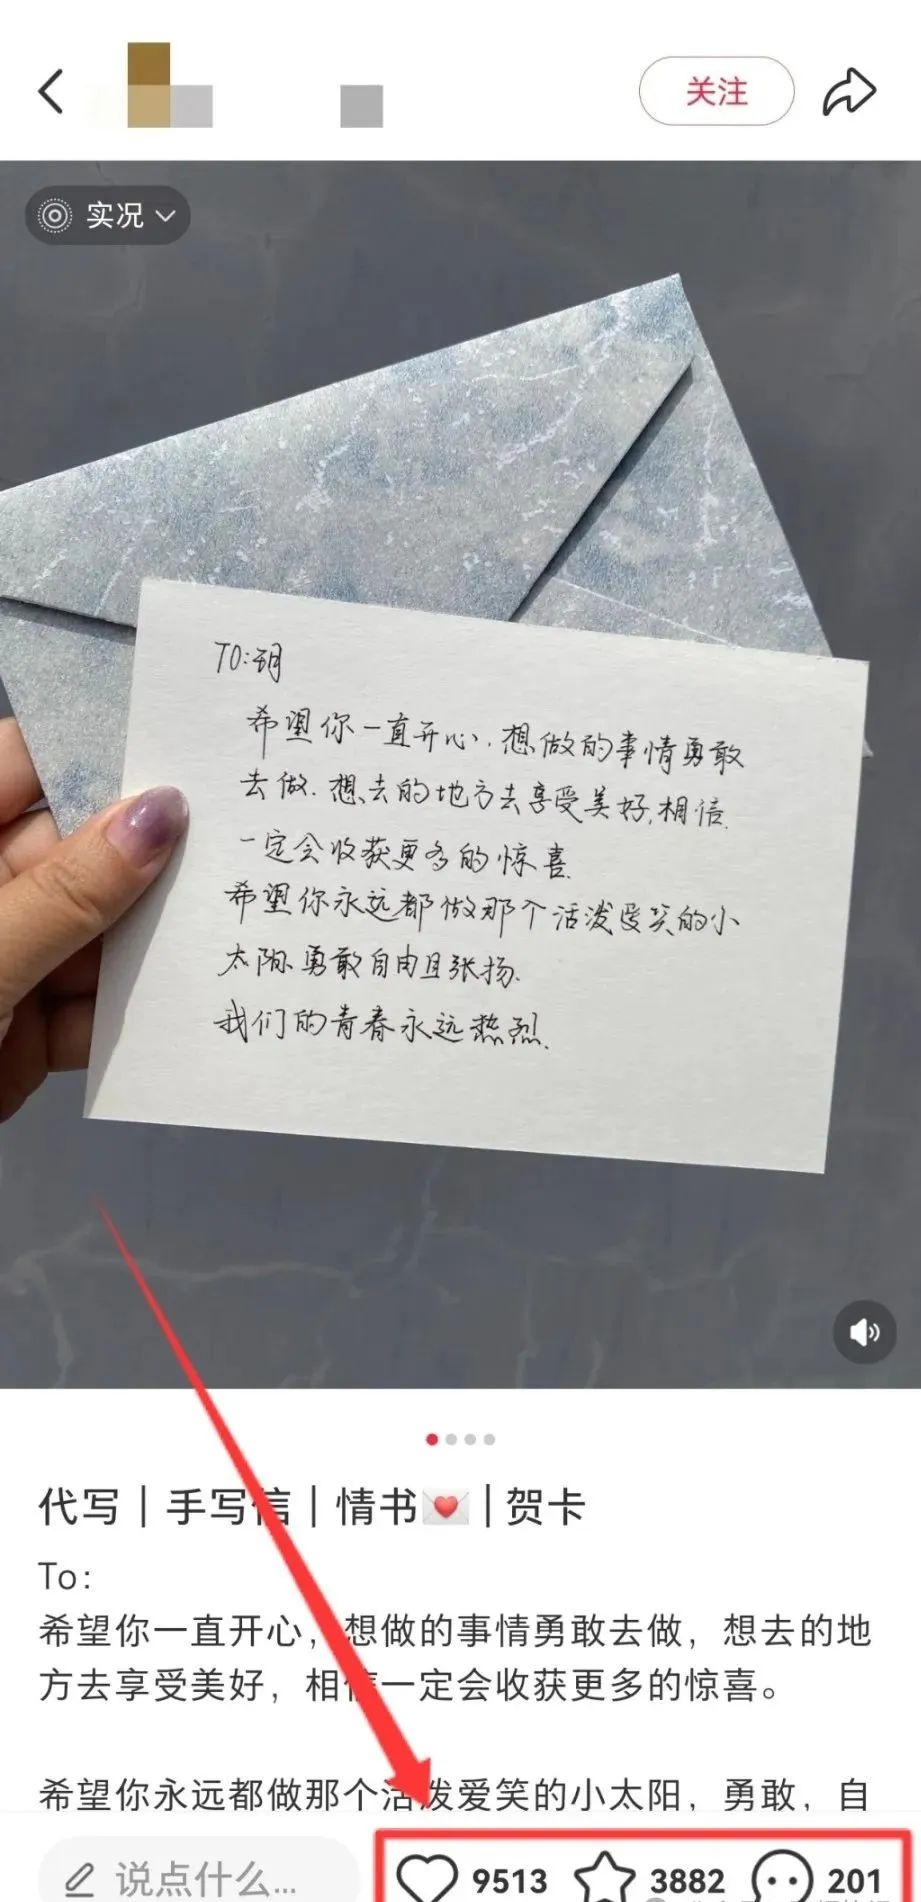 关注
实况
TO:玥
希望你一直开心.想做的事情勇敢
去做.想去的地方去享受美好,相信
一定会收获更多的惊喜.
希望你永远都做那个活泼爱笑的小
太阳.勇敢自由且张扬.
我们的青春永远热烈.
代写｜手写信｜情书💌｜贺卡
To:
希望你一直开心，想做的事情勇敢去做，想去的地
方去享受美好，相信一定会收获更多的惊喜。
希望你永远都做那个活泼爱笑的小太阳，勇敢，自
说点什么... 9513 3882 201